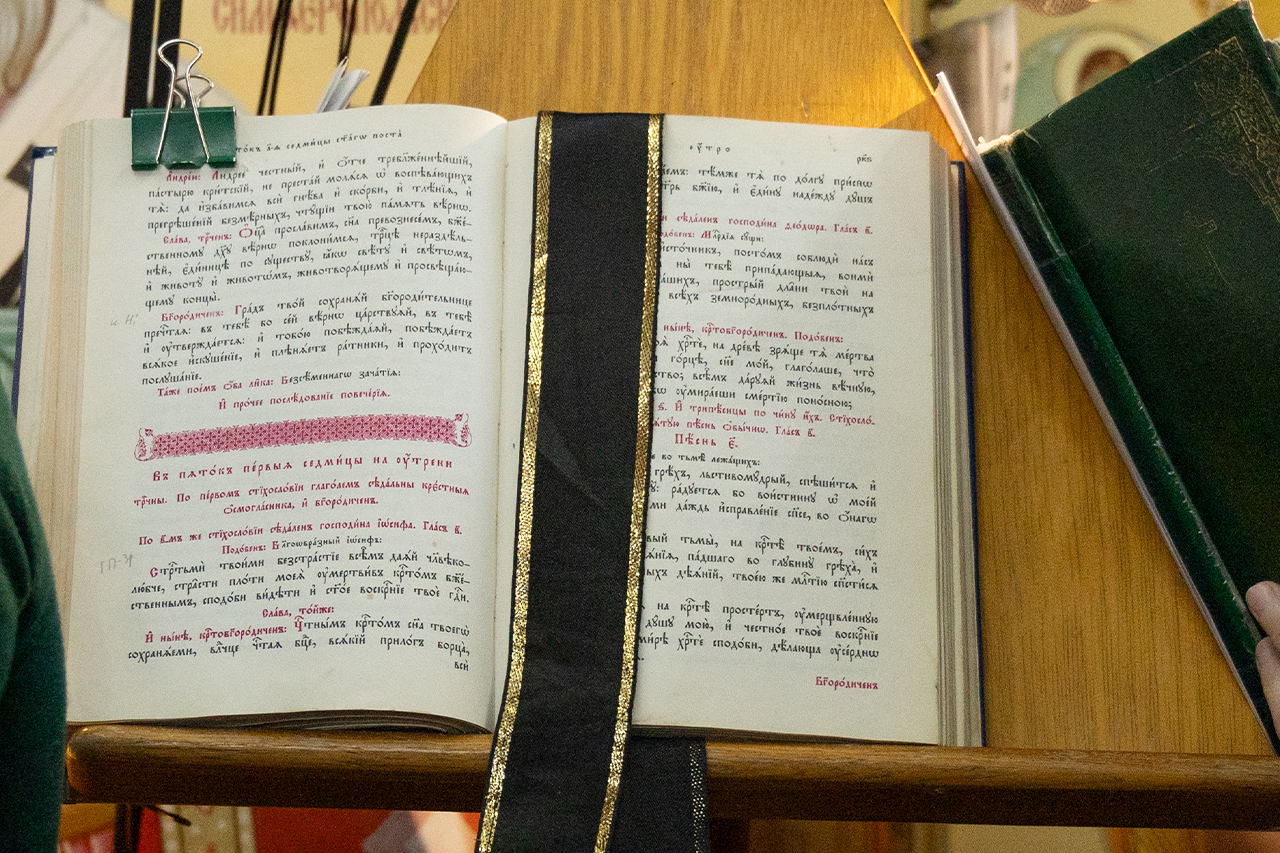 СИМФЕРОПОЛЬСК
токъ а҃-ѧ седми́цы ст҃а́гѡ поста̀
Андре́и: Андре́е честны́й, и҆ ѻ҆́тче требл҃же́ннѣйшїй,
па́стырю кри́тскїй, не преста́й молѧ́сѧ ѡ҆ воспѣва́ющихъ
тѧ̀: да и҆зба́вимсѧ всѝ гнѣ́ва и҆ ско́рби, и҆ тлѣ́нїѧ, и҆
прегрѣше́нїй безмѣ́рныхъ, чтꙋ́щїи твою̀ па́мѧть вѣ́рнѡ.
Сла́ва, трⷪ҇ченъ: Ѻ҆ц҃а̀ просла́вимъ, сн҃а превознесе́мъ, бж҃е́-
ственномꙋ дх҃ꙋ вѣ́рнѡ поклони́мсѧ, трⷪ҇цѣ нераздѣ́ль-
нѣй, є҆ди́ницѣ по сꙋществꙋ̀, ꙗ҆́кѡ свѣ́тꙋ и҆ свѣ́тѡмъ,
и҆ животꙋ̀ и҆ живото́мъ, животворѧ́щемꙋ и҆ просвѣща́ю-
щемꙋ концы̀.
Бг҃оро́диченъ: Гра́дъ тво́й сохранѧ́й бг҃ороди́тельнице
пречⷭ҇таѧ: въ тебѣ́ бо се́й вѣ́рнѡ ца́рствꙋѧй, въ тебѣ̀
и҆ ᲂу҆твержда́етсѧ: и҆ тобо́ю побѣжда́ѧй, побѣжда́етъ
всѧ́кое и҆скꙋше́нїе, и҆ плѣнѧ́етъ ра́тники, и҆ прохо́дитъ
послꙋша́нїе.
Та́же пое́мъ ѻ҆́ба ли́ка: Безсѣ́меннагѡ зача́тїѧ:
И҆ про́чее послѣ́дованїе повече́рїѧ.
Въ пѧто́къ пе́рвыѧ седми́цы на ᲂу҆́трени
трⷪ҇чны. По пе́рвомъ стїхосло́вїи глаго́лемъ сѣда́льны крⷭ҇тныѧ
ѻ҆смогла́сника, и҆ бг҃оро́диченъ.
По в҃-мъ же стїхосло́вїи сѣда́ленъ господи́на і҆ѡ́сифа. Гла́съ в҃.
Подо́бенъ: Благоѡбра́зный і҆ѡ́сифъ:
Стрⷭ҇тьми̑ твои́ми безстра́стїе всѣ̑мъ даѧ́й чл҃вѣко-
лю́бче, стра̑сти пло́ти моеѧ̀ ᲂу҆мертви́въ крⷭ҇то́мъ бж҃е́-
ственнымъ, сподо́би ви́дѣти и҆ ст҃о́е воскрⷭ҇нїе твоѐ гдⷭ҇и.
Сла́ва, то́йже:
И҆ ны́нѣ, крⷭ҇тобг҃оро́диченъ: Чⷭ҇тны́мъ крⷭ҇то́мъ сн҃а твоегѡ̀
сохранѧ́еми, влⷣчце чⷭ҇таѧ бц҃е, всѧ́кїй прило́гъ борца̀,
всѝ
ᲂу҆́тро
рк҃ѕ
тѣ́мже тѧ̀ по до́лгꙋ при́снѡ
бж҃їю, и҆ є҆ди́нꙋ наде́ждꙋ дꙋ́шъ
сѣда́ленъ господи́на ѳео́дѡра. Гла́съ в҃.
Милосе́рдїѧ сꙋ́щи:
и҆сто́чникъ, посто́мъ соблюдѝ на́съ
ны̀ тебѣ̀ припа́дающыѧ, вонмѝ
простры́й дла̑ни твоѝ на
всѣ́хъ земноро́дныхъ, безпло́тныхъ
ны́нѣ, крⷭ҇тобг҃оро́диченъ. Подо́бенъ:
хрⷭ҇тѐ, на дре́вѣ зрѧ́ще тѧ̀ ме́ртва
го́рцѣ, сн҃е мо́й, глаго́лаше, что̀
всѣ̑мъ да́рꙋѧй жи́знь вѣ́чнꙋю,
ᲂу҆мира́еши сме́ртїю поно́сною;
И҆ трипѣ́снцы по чи́нꙋ и҆́хъ. Стїхосло́-
пѣ́снь ѻ҆бы́чнѡ. Гла́съ в҃.
Пѣ́снь є҃.
во тьмѣ̀ лежа́щихъ:
грѣ́хъ, льстивомꙋ́дрый, спѣши́тсѧ и҆
ра́дꙋетсѧ бо вои́стиннꙋ ѡ҆ мое́й
да́ждь и҆справле́нїе сп҃се, во ѻ҆́нагѡ
тьмы̀, на крⷭ҇тѣ̀ твое́мъ, си́хъ
па́дшаго во глꙋбинꙋ̀ грѣха̀, и҆
дѣѧ́нїй, твое́ю же млⷭ҇тїю сп҃сти́сѧ
на крⷭ҇тѣ̀ просте́ртъ, ᲂу҆мерщвле́ннꙋю
дꙋ́шꙋ мою̀, и҆ честно́е твоѐ воскрⷭ҇нїе
хрⷭ҇тѐ сподо́би, дѣ́лающа ᲂу҆се́рднѡ
Бг҃оро́диченъ